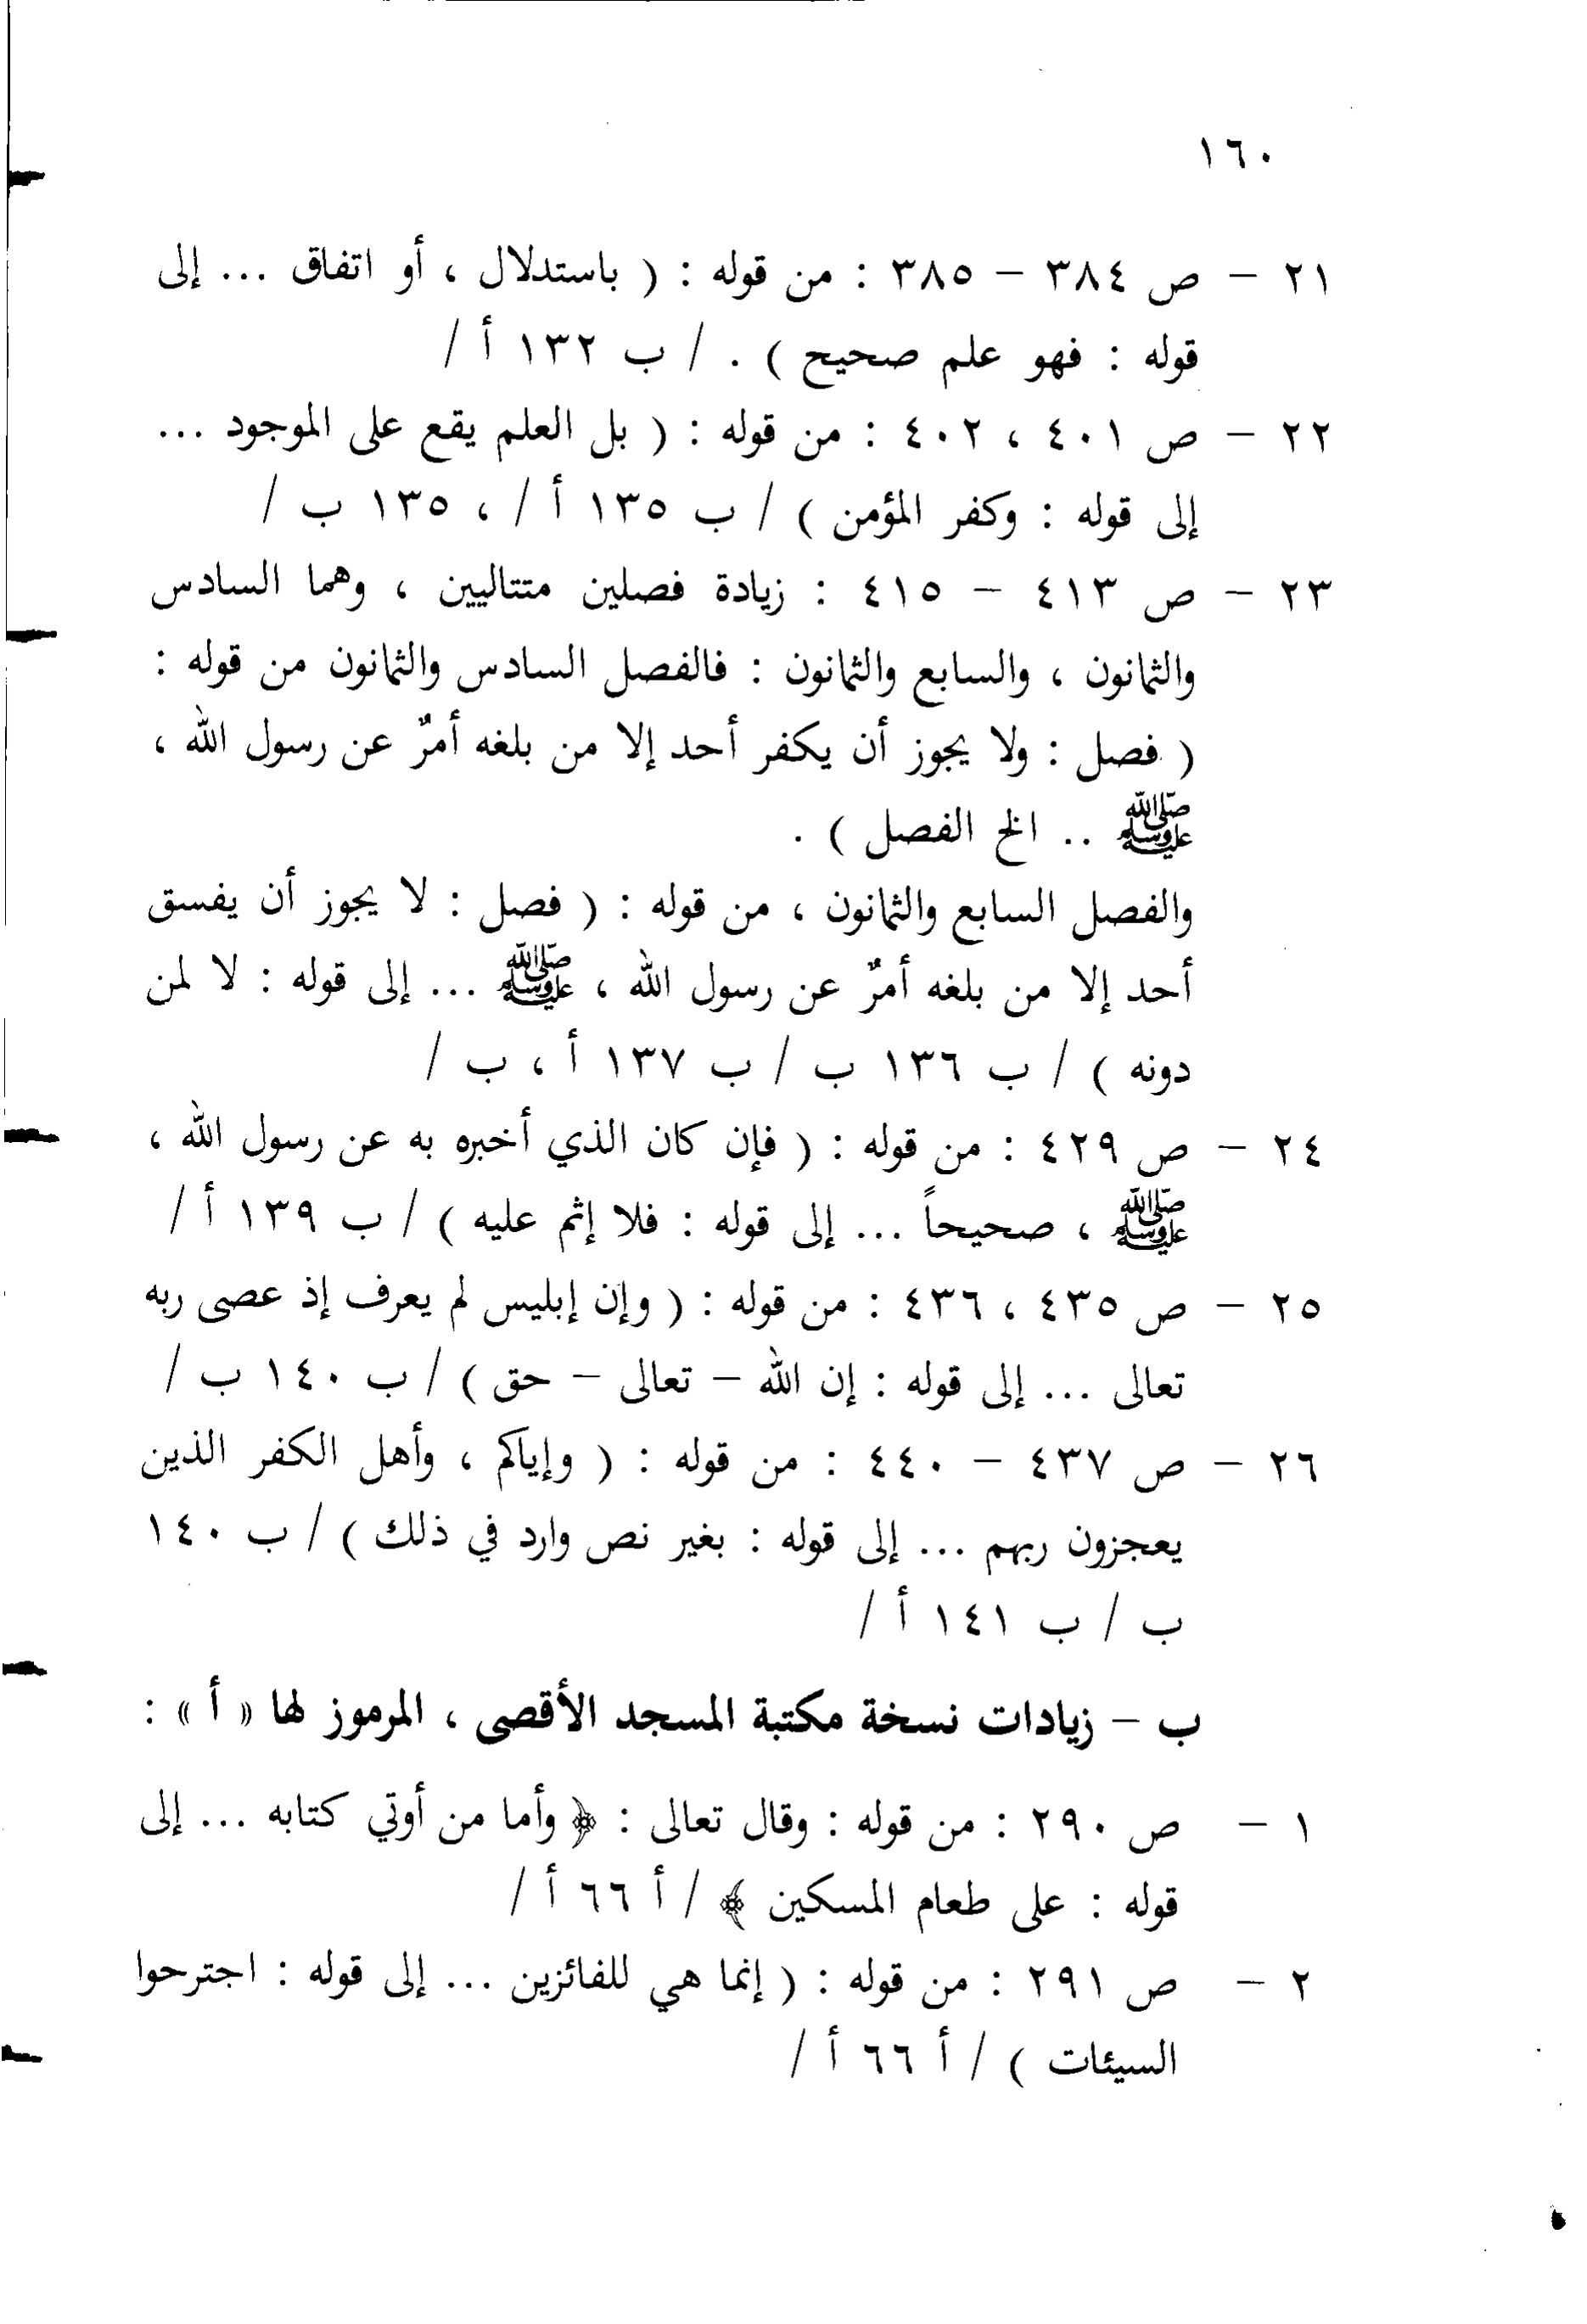 ١٦٠
٢١ - ص ٣٨٤ - ٣٨٥ : من قوله : ( باستدلال ، أو اتفاق ... إلى
قوله : فهو علم صحيح ) . / ب ١٣٢ أ /
٢٢ - ص ٤٠١ ، ٤٠٢ : من قوله : ( بل العلم يقع على الموجود ...
إلى قوله : وكفر المؤمن ) / ب ١٣٥ أ / ، ١٣٥ ب /
٢٣ - ص ٤١٣ - ٤١٥ : زيادة فصلين متتاليين ، وهما السادس
والثمانون ، والسابع والثمانون : فالفصل السادس والثمانون من قوله :
( فصل : ولا يجوز أن يكفر أحد إلا من بلغه أمرٌ عن رسول الله ،
ﷺ .. الخ الفصل ) .
والفصل السابع والثمانون ، من قوله : ( فصل : لا يجوز أن يفسق
أحد إلا من بلغه أمرٌ عن رسول الله ، ﷺ ... إلى قوله : لا لمن
دونه ) / ب ١٣٦ ب / ب ١٣٧ أ ، ب /
٢٤ - ص ٤٢٩ : من قوله : ( فإن كان الذي أخبره به عن رسول الله ،
ﷺ ، صحيحاً ... إلى قوله : فلا إثم عليه ) / ب ١٣٩ أ /
٢٥ - ص ٤٣٥ ، ٤٣٦ : من قوله : ( وإن إبليس لم يعرف إذ عصى ربه
تعالى ... إلى قوله : إن الله - تعالى - حق ) / ب ١٤٠ ب /
٢٦ - ص ٤٣٧ - ٤٤٠ : من قوله : ( وإياكم ، وأهل الكفر الذين
يعجزون ربهم ... إلى قوله : بغير نص وارد في ذلك ) / ب ١٤٠
ب / ب ١٤١ أ /
ب - زيادات نسخة مكتبة المسجد الأقصى ، المرموز لها « أ » :
١ - ص ٢٩٠ : من قوله : وقال تعالى : ﴿ وأما من أوتي كتابه ... إلى
قوله : على طعام المسكين ﴾ / أ ٦٦ أ /
٢ - ص ٢٩١ : من قوله : ( إنما هي للفائزين ... إلى قوله : اجترحوا
السيئات ) / أ ٦٦ أ /